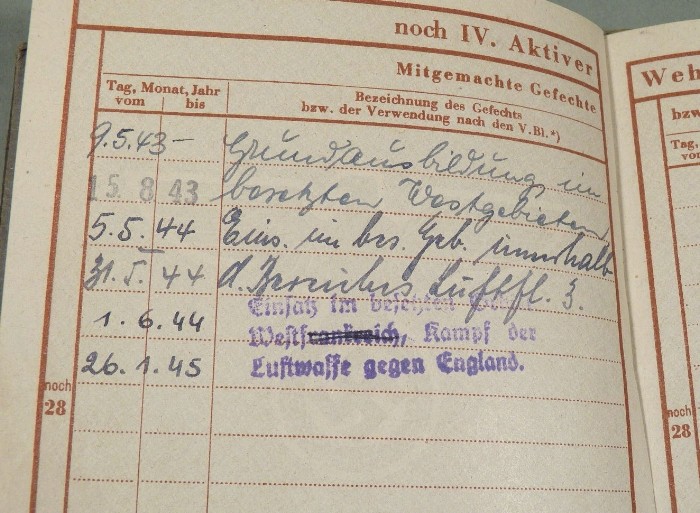 noch IV. Aktiver
Mitgemachte Gefechte
Tag, Monat, Jahr
vom bis
Bezeichnung des Gefechts
bzw. der Verwendung nach den V.Bl.*)
9.5.43 – Grundausbildung im
15 8 43 besetzten Westgebieten
5.5.44 Eins. im bes. Geb. innerhalb
31.5.44 d. Bereiches Luftfl. 3.
Einsatz im besetzten
1.6.44 Westfrankreich, Kampf der
26.1.45 Luftwaffe gegen England.
noch
28
Weh
bzw
Tag,
vo
noch
28